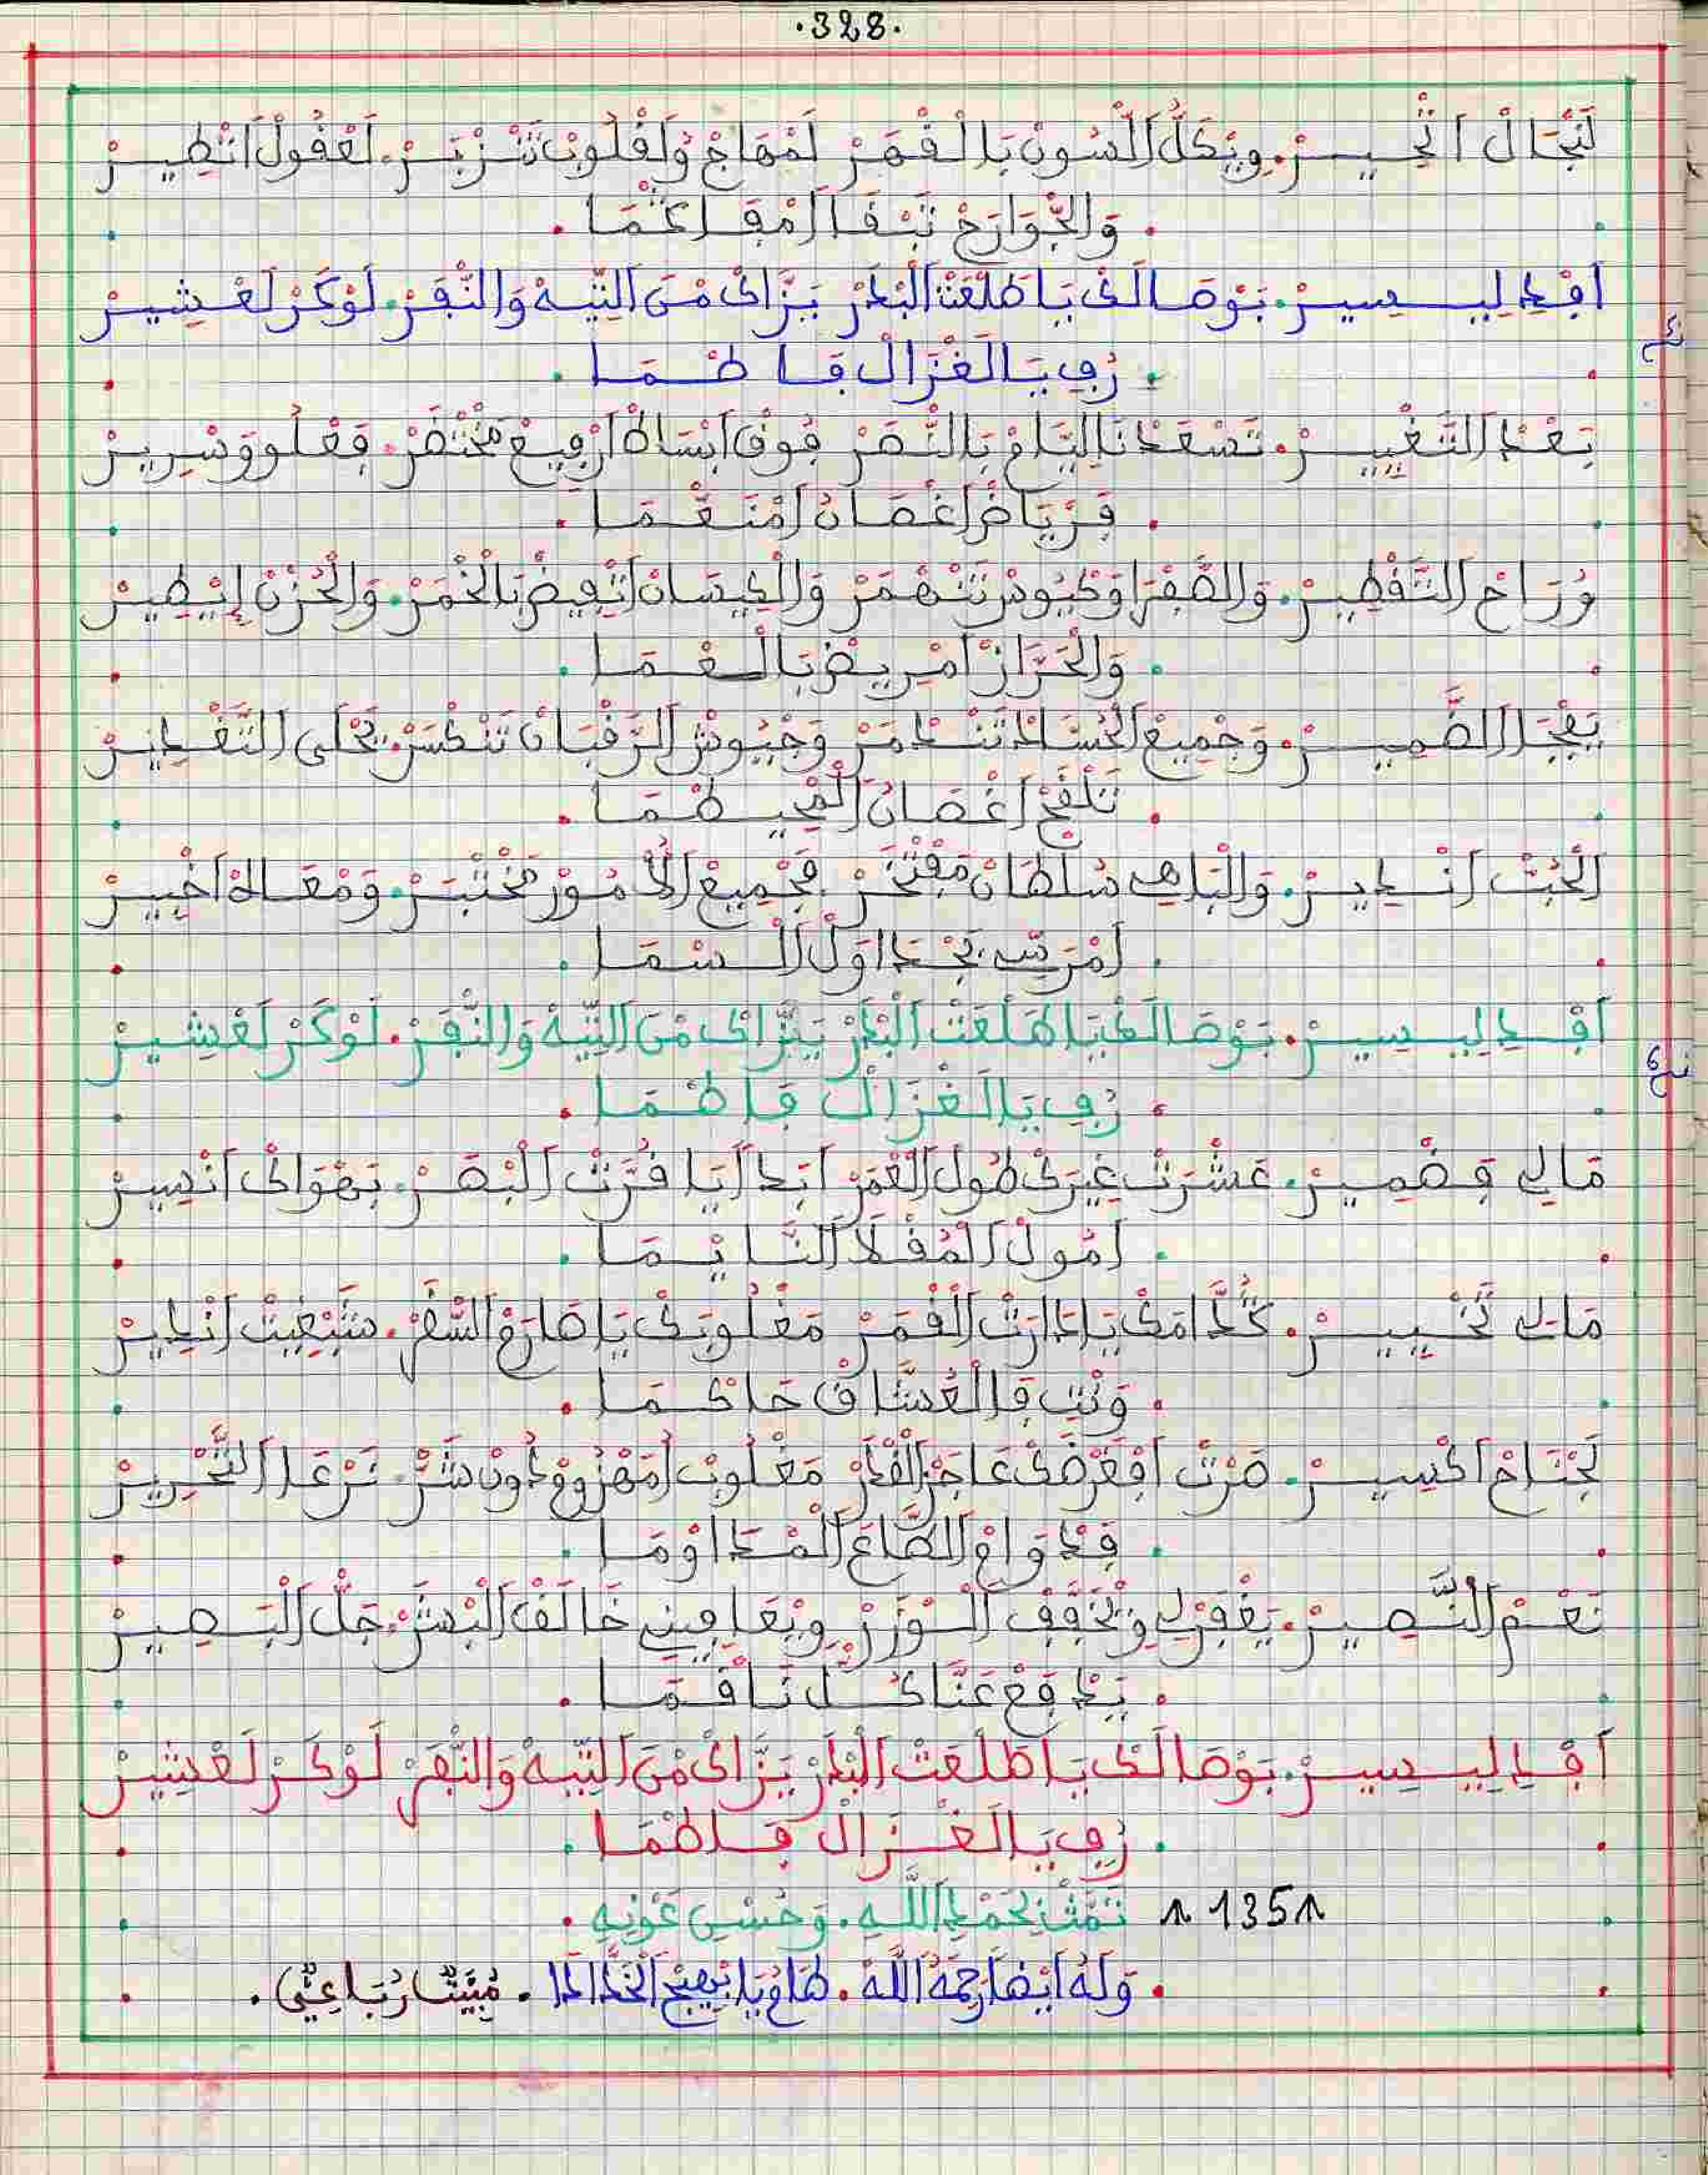 .328.
لَنْجَالْ اتْحِيرْ. وِيكَلُّ الَسُونْ بَالْقْهَرْ لَمْهَاجْ وَلَقْلُوبْ تَنْزْبَرْ. لَعْقُولْ اتْطِيرْ
. وَالجْوَارَحْ تَبْقَا امْقَاكْمَا .
اقْدِ لِيسِيرْ. بَوْصَالَكْ يَا طَلْعَتْ الْبْدَرْ يَزَّاكْ مْنَ التِّيهْ وَالنّْفَرْ. لَوْكَرْ لَعْشِيرْ
. رُفِ يَا لَغْزَالْ فَاطْمَا .
بَعْدْ التَّغْيِيرْ. تَسْعَدْنَا ليَّامْ بَالنّْصَرْ فُوقْ ابْسَاطْ ارْفِيعْ مَخْتْصَرْ. فَعْلُو وَسْرِيرْ
. فَرْيَاضْ اغْصَانُ امْنَعّْمَا .
وُرَاحْ التَّقْطِيرْ. وَالصَّفْرَا وَكْيُوسْ تَنْهْمَرْ وَالْكِيسَانْ اتْفِيضْ بَالْخْمَرْ. وَالْحُزْنْ إيْطِيرْ
. وَالْحَرَّازْ امْرِيضْ بَالْعْمَا .
يَفْجَا الضْمِيرْ. وَجْمِيعْ الْحُسَّادْ تَنْدْمَرْ وَجْيُوشْ الرَّقْبَانْ تَنْكْسَرْ. يَحْلَى التَّقْدِيرْ
. تَلْقَحْ اغْصَانْ
الْحُبْ انْدِيرْ. وَالْبَاهِي سُلْطَانْ مَفْتْخَرْ فَجْمِيعْ الاُمُورْ مَخْتْبَرْ. وَمْعَاهْ اخْبِيرْ
. امْرَتِّبْ بَجْدَاوَلْ السّْمَا .
اقْدِ لِيسِيرْ. بَوْصَالَكْ يَا طَلْعَتْ الْبْدَرْ يَزَّاكْ مْنَ التِّيهْ وَالنّْفَرْ. لَوْكَرْ لَعْشِيرْ
. رُفِ يَا لَغْزَالْ فَاطْمَا .
مَالِي فِضْمِيرْ. عَشْرَتْ غِيرَكْ طُولْ الْعْمَرْ ابَدْ ايَا قُرَّتْ الْبْصَرْ. بَهْوَاكْ انْسِيرْ
. امُولْ الْمُقْلَا النَّايْمَا .
مَالِي تَخْيِيرْ. كُدَّامَكْ يَا دَارَتْ الْقْمَرْ مَغْلُوبَكْ يَا صَارَمْ السّْفَرْ. سَبْغِيتْ انْدِيرْ
. وَنْتِ فَالْعُشَّاقْ حَاكْمَا .
لَجْنَاحْ اكْسِيرْ. صَرْتْ افْعَرْضَكْ عَاجَزْ الْقْدَرْ مَغْلُوبْ امَهْزُومْ دُونْ شَرّْ. نَرْعَا التَّحْرِيرْ
. فِدْوَامْ الطَّاعَ الْمْدَاوْمَا .
نَعْمْ النّْصِيرْ. يَغْفَرْلِي وِيْخَفَّفْ الْوْزَرْ وِيْعَافِينِي خَالَقْ الْبْشَرْ. جَلّْ الْبْصِيرْ
. يَدْفَعْ عَنَّا كُلّْ نَاقْمَا .
اقْدِ لِيسِيرْ. بَوْصَالَكْ يَا طَلْعَتْ الْبْدَرْ يَزَّاكْ مْنَ التِّيهْ وَالنّْفَرْ لَوْكَرْ لَعْشِيرْ
. رُفِ يَا لَغْزَالْ فَاطْمَا .
135 تَمَّتْ بِحَمْدِ اللَّهِ. وَحُسْنِ عَوْنِهِ .
. وَلَهُ أيْضا رَحِمَهُ اللَّهْ. طَامُ يَا ابْهِيجْ الْخَدَّا . مْبَيَّتْ رُبَاعِيّْ .